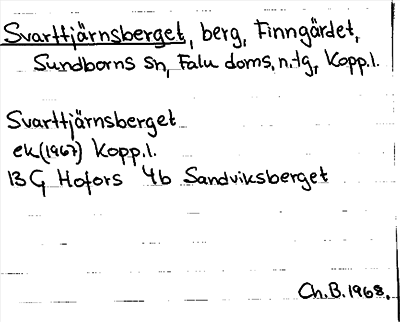 Svarttjärnsberget, berg, Finngärdet,
Sundborns sn, Falu doms. n. tg, Kopp. l.
Svarttjärnsberget
ek (1967) Kopp. l.
13 G Hofors 4b Sandviksberget
Ch. B. 1968.